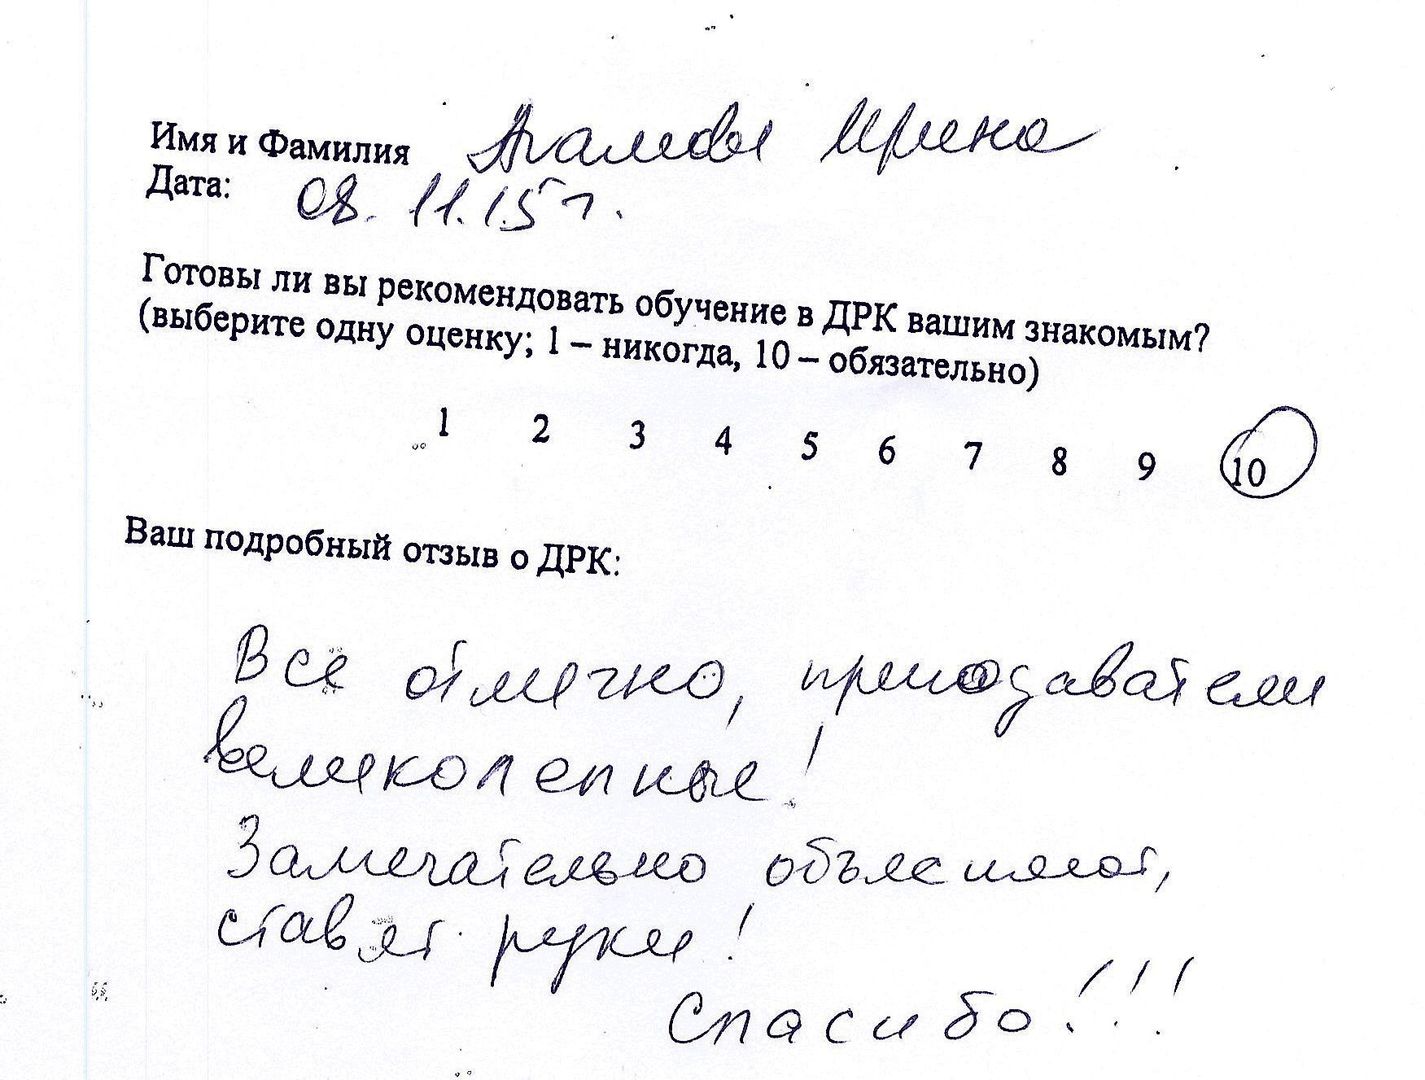 Имя и Фамилия Ирина
Дата: 08.11.15 г.
Готовы ли вы рекомендовать обучение в ДРК вашим знакомым?
(выберите одну оценку; 1 – никогда, 10 – обязательно)
1 2 3 4 5 6 7 8 9 10
Ваш подробный отзыв о ДРК:
Всё отлично, преподаватели
великолепные!
Замечательно объясняют,
ставят руки!
Спасибо!!!